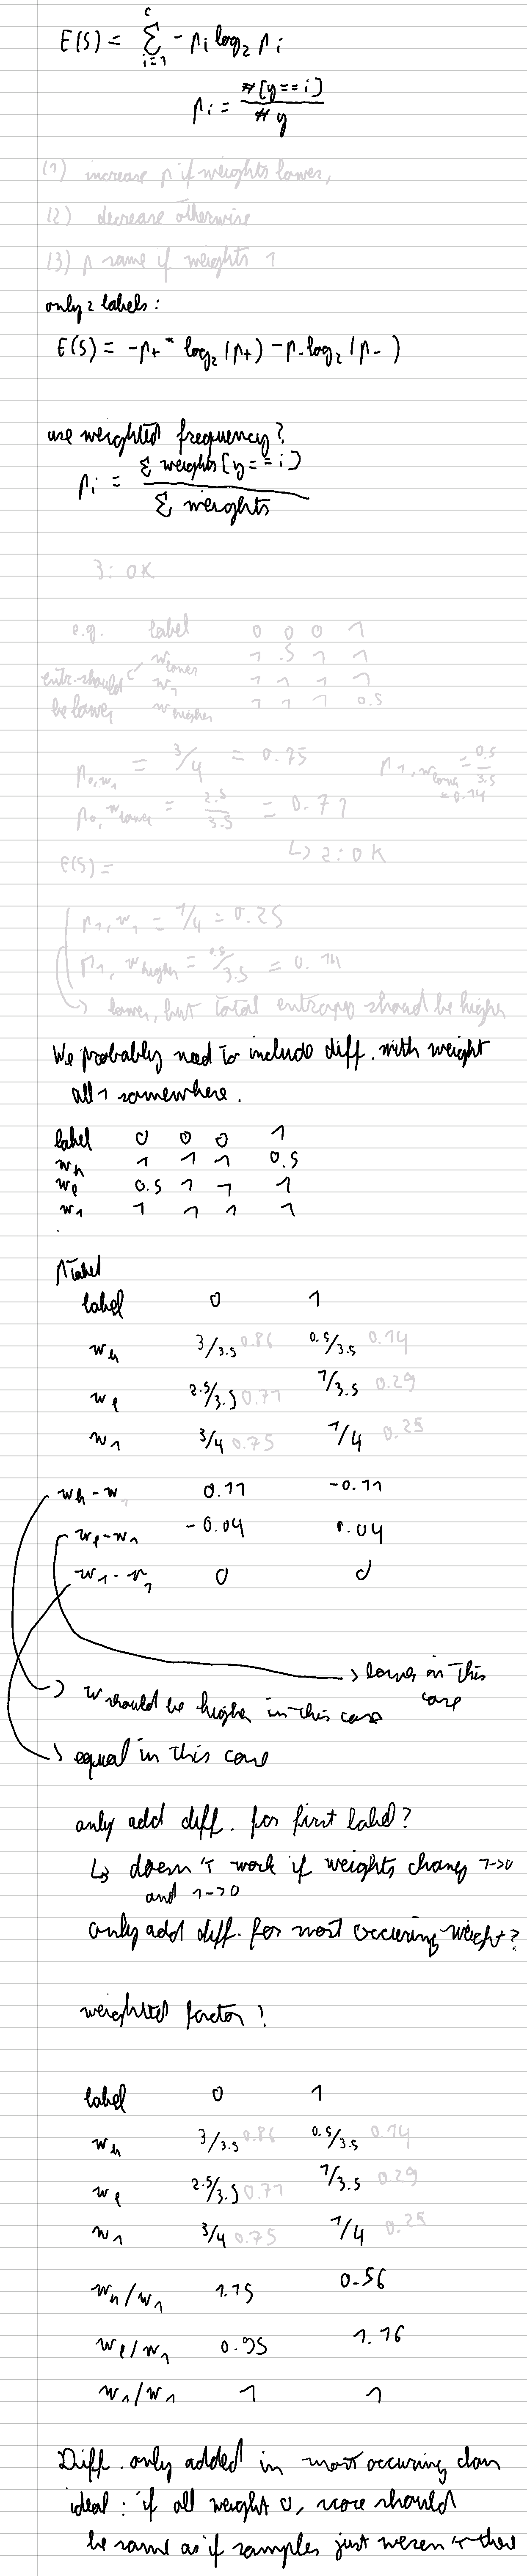 E(S) = c Σ i=1 -pi log2 pi
pi = #[y==i] / #y
(1) increase p if weights lower,
(2) decrease otherwise
(3) p same if weights 1
only 2 labels:
E(S) = -p+ * log2 (p+) - p- log2 (p-)
use weighted frequency?
pi = Σ weights[y==i] / Σ weights
3: OK
e.g. label 0 0 0 1
w lower 1 .5 1 1
entr. should w1 1 1 1 1
be lower w higher 1 1 1 0.5
p0,w1 = 3/4 = 0.75 p1,w lower = 0.5/3.5 = 0.14
p0,w lower = 2.5/3.5 = 0.71
E(S) = ↳ 2: OK
p1,w1 = 1/4 = 0.25
p1,w higher = 0.5/3.5 = 0.14
→ lower, but total entropy should be higher
We probably need to include diff. with weight
all 1 somewhere.
label 0 0 0 1
wh 1 1 1 0.5
wl 0.5 1 1 1
w1 1 1 1 1
.
p label
label 0 1
wh 3/3.5 0.86 0.5/3.5 0.14
wl 2.5/3.5 0.71 1/3.5 0.29
w1 3/4 0.75 1/4 0.25
wh-w1 0.11 -0.11
wl-w1 -0.04 0.04
w1-w1 0 0
→ lower in this
case
→ w should be higher in this case
→ equal in this case
only add diff. for first label?
↳ doesn't work if weights change 1->0
and 1->0
only add diff. for most occuring weight?
weighted factor?
label 0 1
wh 3/3.5 0.86 0.5/3.5 0.14
wl 2.5/3.5 0.71 1/3.5 0.29
w1 3/4 0.75 1/4 0.25
wh/w1 1.15 0.56
wl/w1 0.95 1.16
w1/w1 1 1
Diff. only added in most occuring class
ideal: if all weight 0, score should
be same as if samples just weren't there